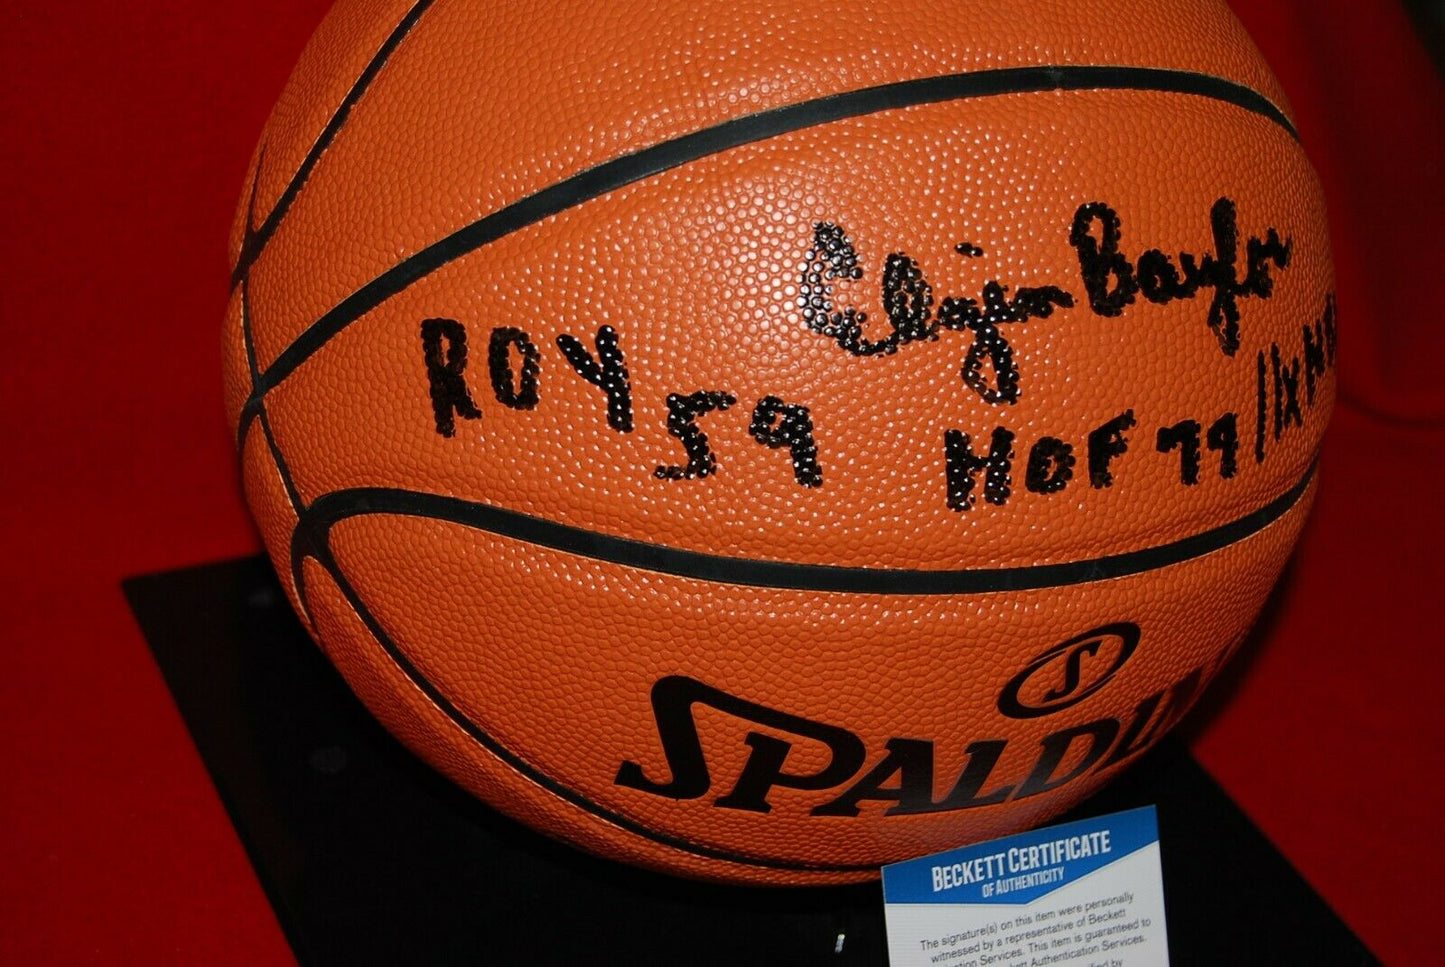 Elgin Baylor
ROY 59
HOF 77
11x
SPALDING
BECKETT CERTIFICATE
OF AUTHENTICITY
The signature(s) on this item were personally
witnessed by a representative of Beckett
Services. This item is guaranteed to
Authentication Services.
by